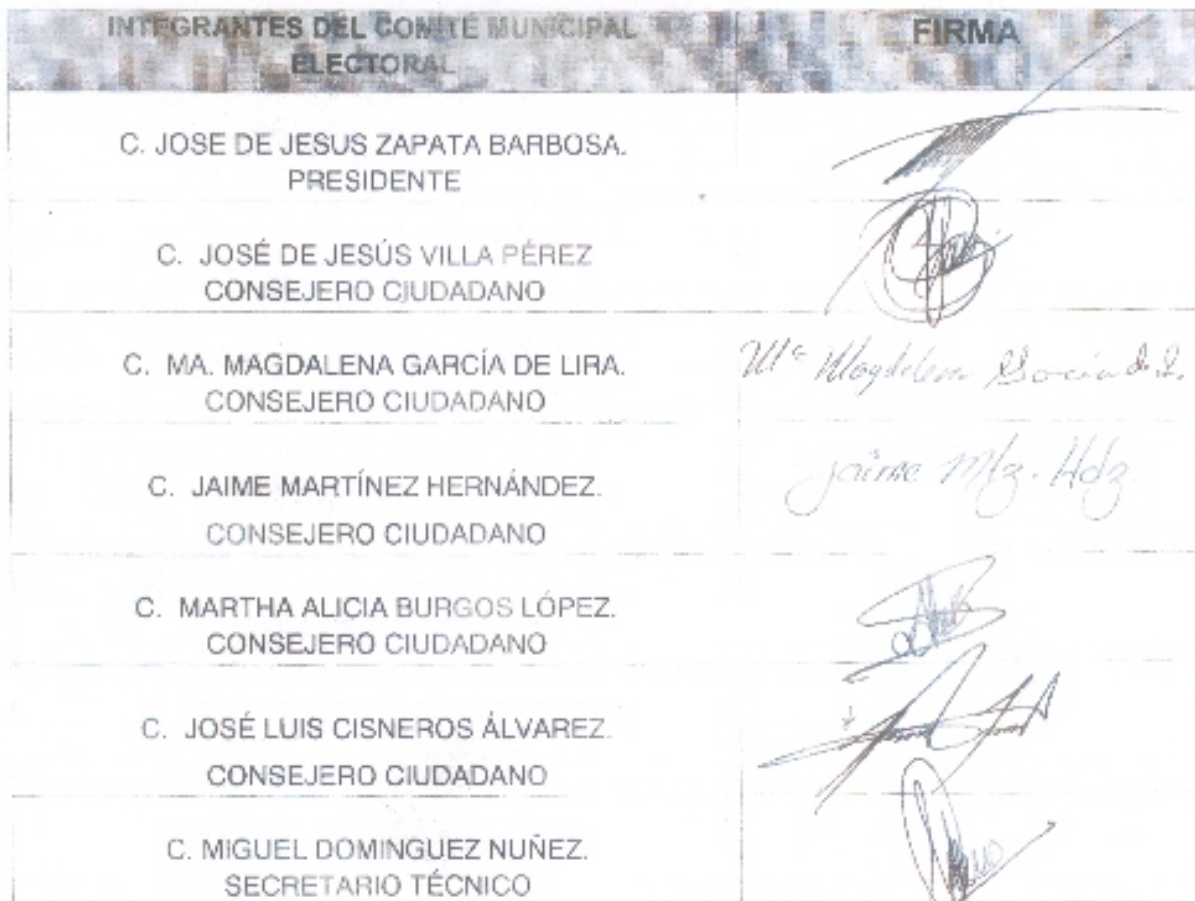 INTEGRANTES DEL COMITÉ MUNICIPAL
ELECTORAL
FIRMA
C. JOSE DE JESUS ZAPATA BARBOSA.
PRESIDENTE
C. JOSÉ DE JESÚS VILLA PÉREZ
CONSEJERO CIUDADANO
C. MA. MAGDALENA GARCÍA DE LIRA.
CONSEJERO CIUDADANO
Mª Magdalena García de L.
C. JAIME MARTÍNEZ HERNÁNDEZ.
CONSEJERO CIUDADANO
jaime Mtz. Hdz.
C. MARTHA ALICIA BURGOS LÓPEZ.
CONSEJERO CIUDADANO
C. JOSÉ LUIS CISNEROS ÁLVAREZ.
CONSEJERO CIUDADANO
C. MIGUEL DOMINGUEZ NUÑEZ.
SECRETARIO TÉCNICO